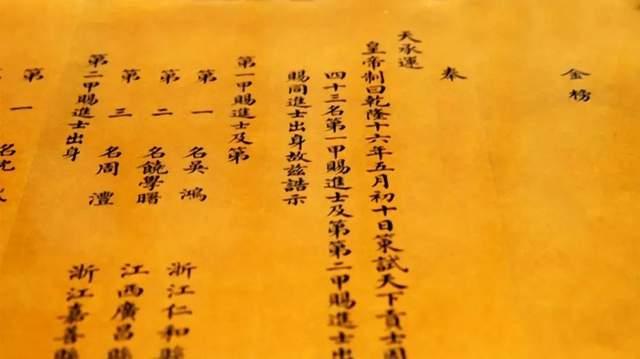 金榜
奉
天承運
皇帝制曰乾隆十六年五月初十日策試天下貢士
四十三名第一甲賜進士及第第二甲賜進士出
賜同進士出身故茲誥示
第一甲賜進士及第
第一名吳鴻 浙江仁和縣
第二名饒學曙 江西廣昌縣
第三名周澧 浙江嘉善縣
第二甲賜進士出身
第一名沈